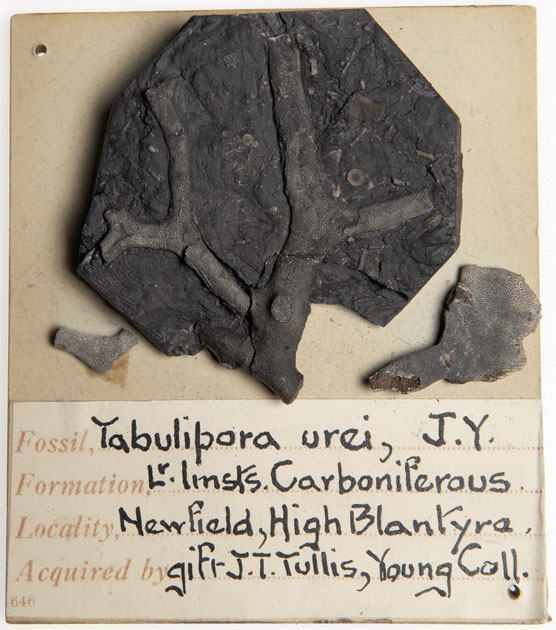 Fossil, Tabulipora urei, J.Y.
Formation, Lr. limsts. Carboniferous.
Locality, Newfield, High Blantyre.
Acquired by gift J.T. Tullis, Young Coll.
646